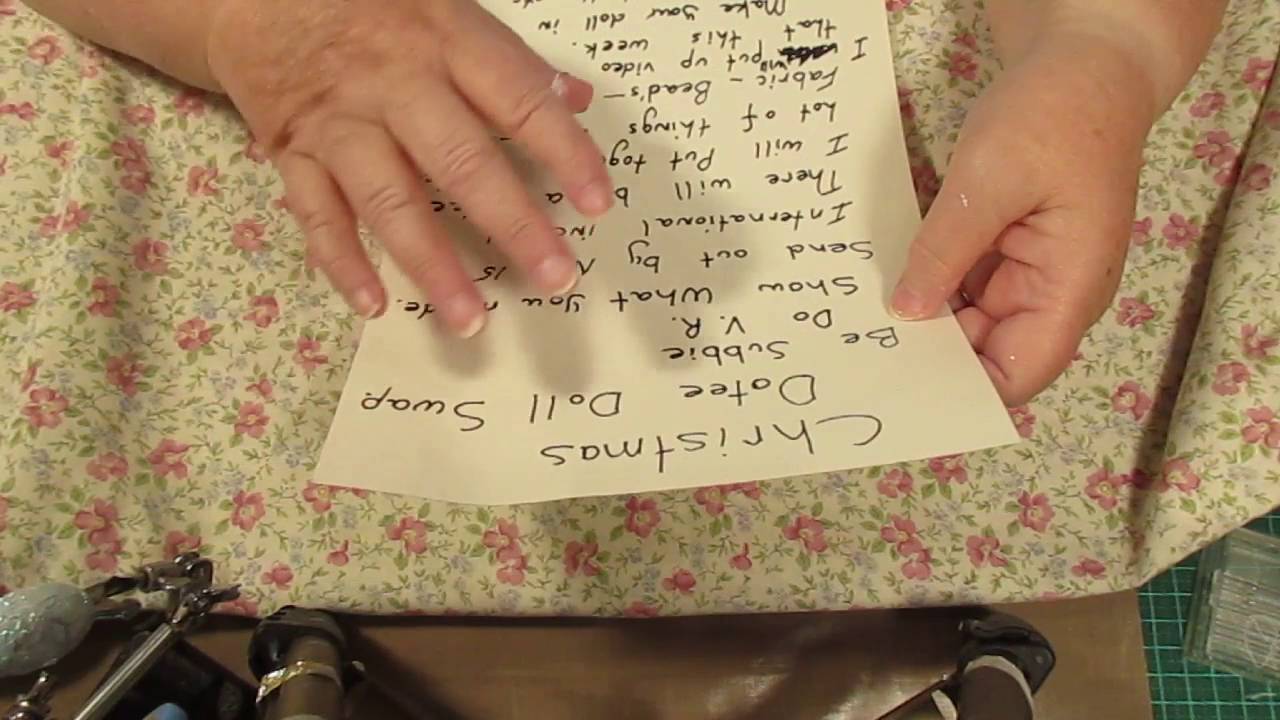 Christmas
Dotee Doll Swap
Be Subbie
Do V. R.
Show What you
Send out by 15
International
There will a
I will Put
Lot of things
Fabric - Bead's -
I will put up video
that this week.
Make your doll in